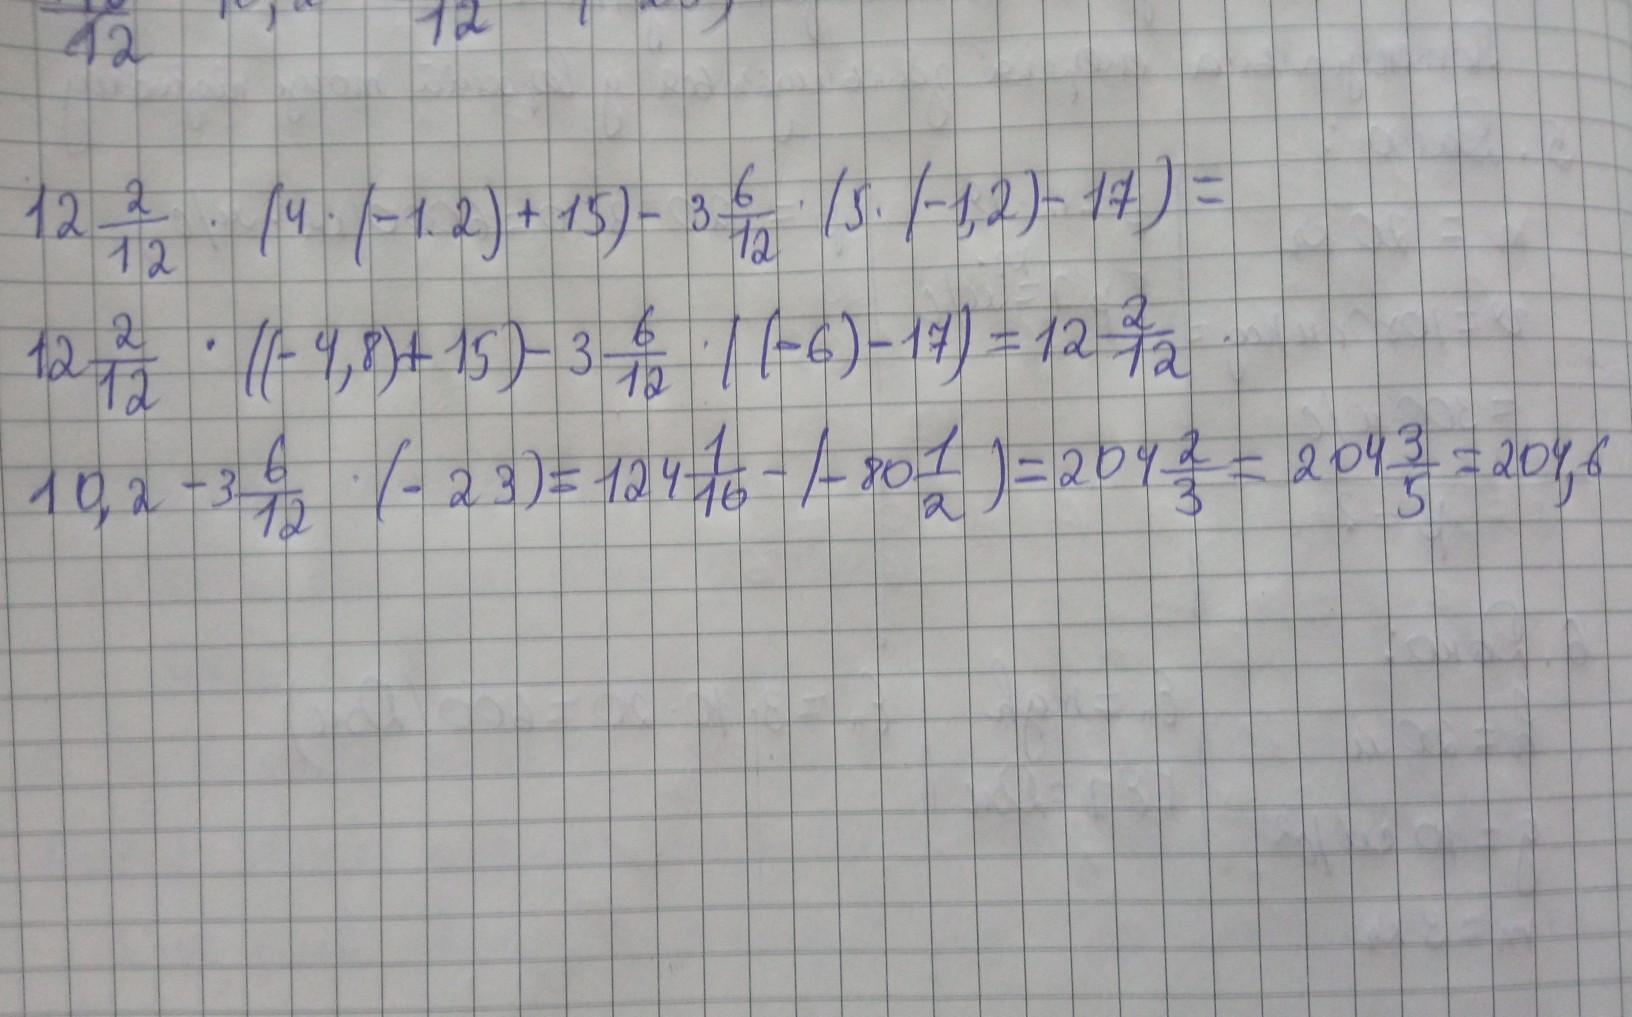 12 12
12 2/12 · (4 · (-1.2) + 15) - 3 6/12 · (5 · (-1,2) - 17) =
12 2/12 · ((-4,8) + 15) - 3 6/12 · ((-6) - 17) = 12 2/12 ·
10,2 - 3 6/12 · (-23) = 124 1/10 - (-80 1/2) = 204 2/3 = 204 3/5 = 204,6